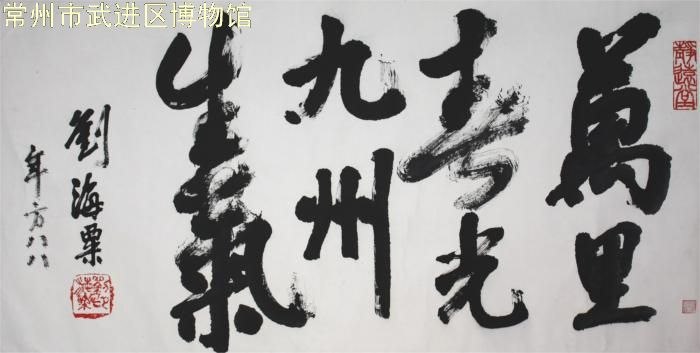 常州市武进区博物馆
萬里
春光
九州
生氣
劉海粟
年方八八